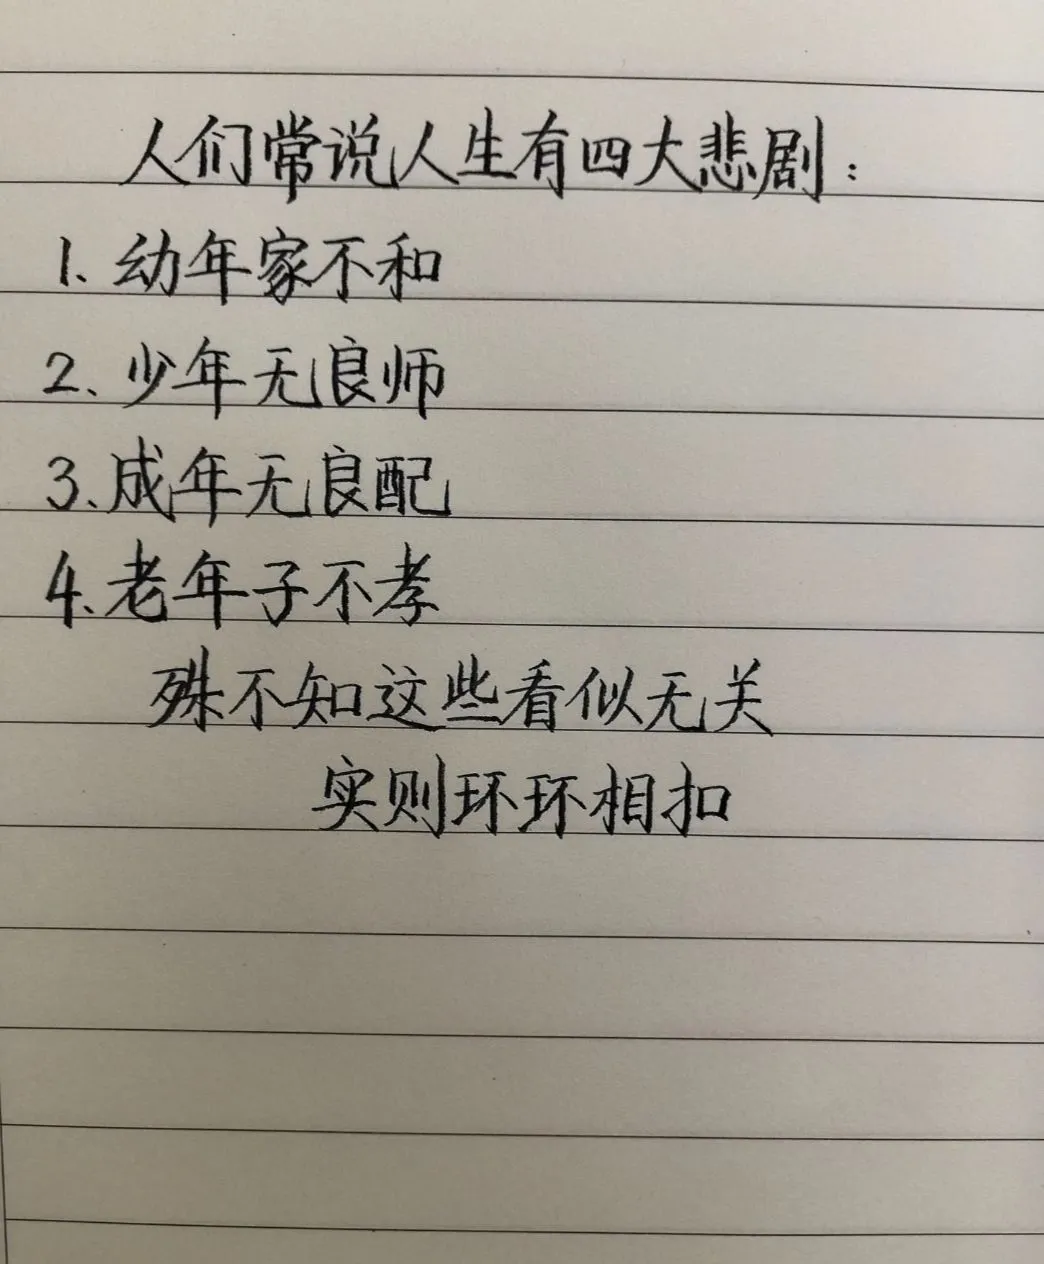 人们常说人生有四大悲剧：
1、幼年家不和
2、少年无良师
3、成年无良配
4、老年子不孝
殊不知这些看似无关
实则环环相扣